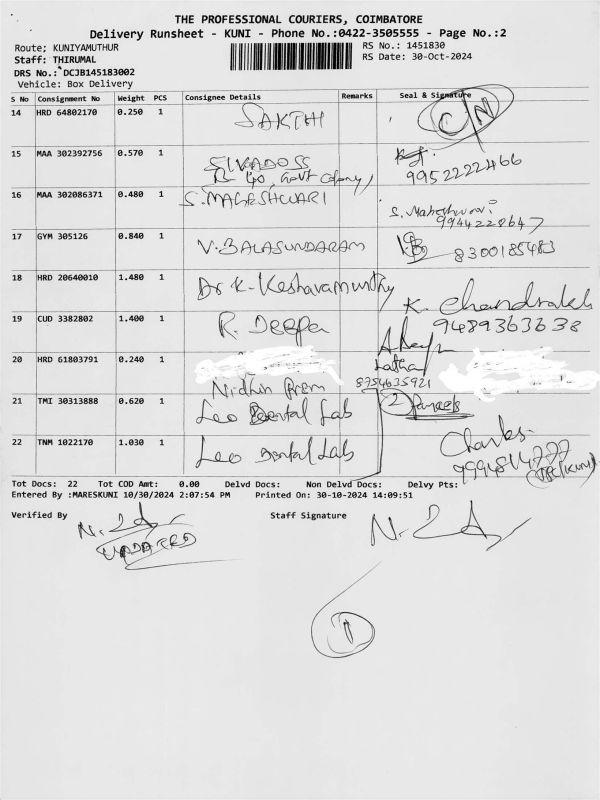 THE PROFESSIONAL COURIERS, COIMBATORE
Delivery Runsheet - KUNI - Phone No.:0422-3505555 - Page No.:2
Route; KUNIYAMUTHUR
RS No.: 1451830
Staff: THIRUMAL
RS Date: 30-Oct-2024
DRS No.: DCJB145183002
Vehicle: Box Delivery
S No Consignment No Weight PCS Consignee Details Remarks Seal & Signature
14 HRD 64802170 0.250 1 SAKTHI C/N
15 MAA 302392756 0.570 1 SIVADOSS
40, Govt Colony 9952222466
16 MAA 302086371 0.480 1 S. MAGESHWARI S. Maheshwari
9944228647
17 GYM 305126 0.840 1 V. BALASUNDARAM 8300185483
18 HRD 20640010 1.480 1 Dr K. Keshavamurthy K. Chandrakala
19 CUD 3382802 1.400 1 R. Deepa 9489363638
20 HRD 61803791 0.240 1 Latha
Nidhin Prem 8754635921
21 TMI 30313888 0.620 1 Leo Dental Lab 2
22 TNM 1022170 1.030 1 Leo Dental Lab Charles
Tot Docs: 22 Tot COD Amt: 0.00 Delvd Docs: Non Delvd Docs: Delvy Pts:
Entered By :MARESKUNI 10/30/2024 2:07:54 PM Printed On: 30-10-2024 14:09:51
Verified By Staff Signature